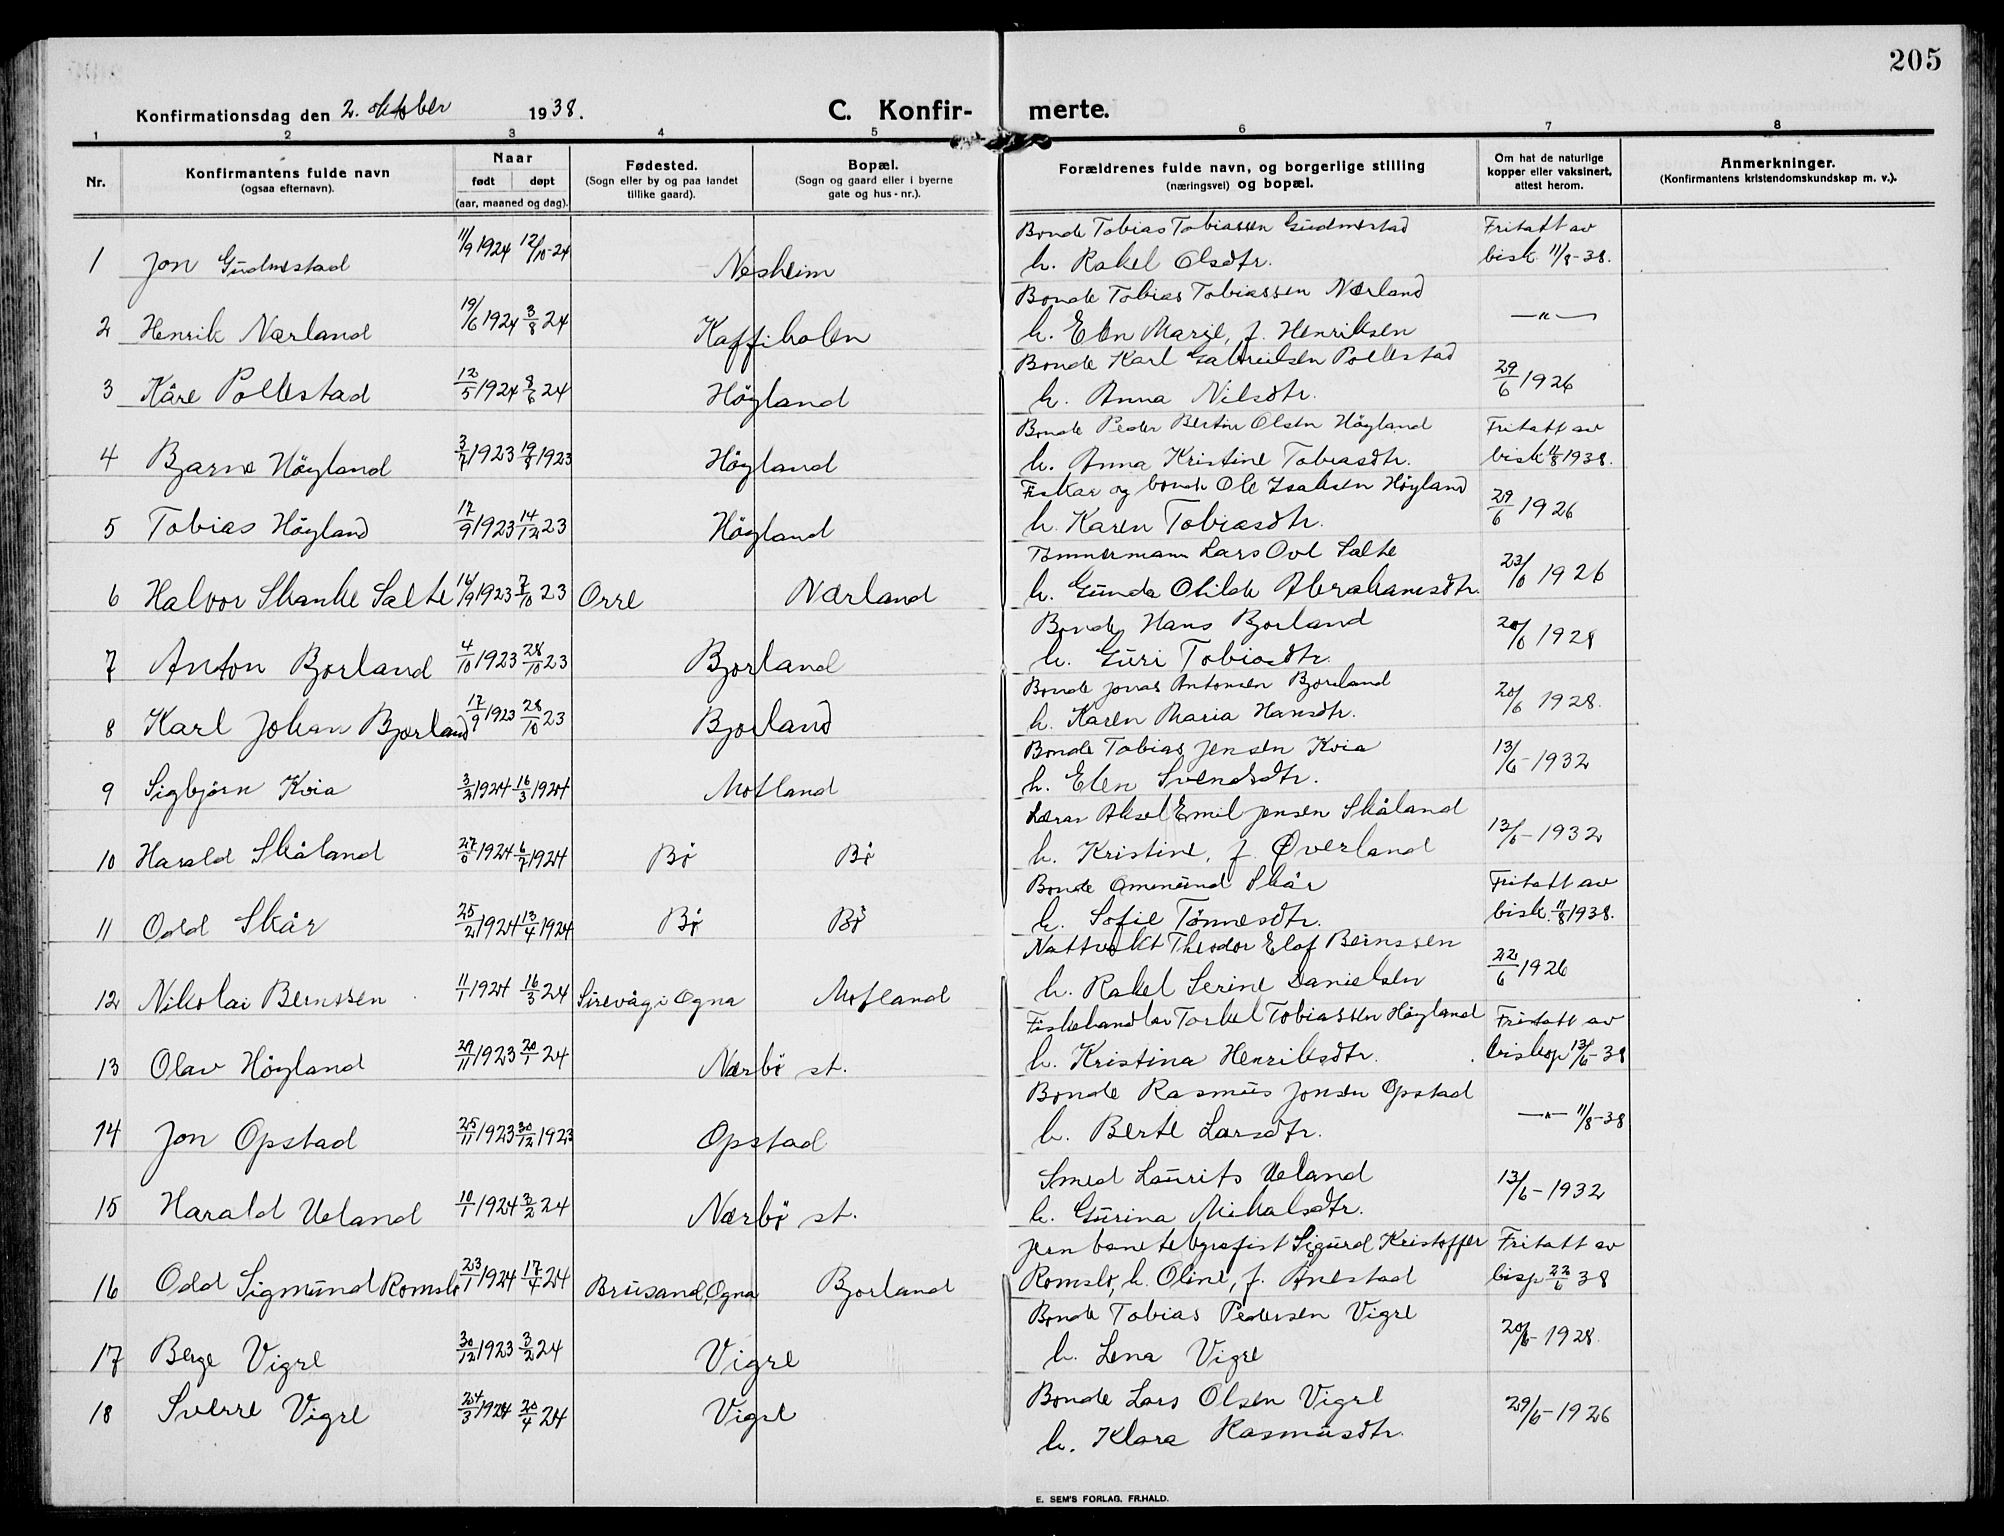 205
Konfirmationsdag den 2. oktober 1938.
C. Konfir- merte.
1 2 3 4 5 6 7 8
Nr.
Konfirmantens fulde navn
(ogsaa efternavn).
Naar
født døpt
(aar, maaned og dag).
Fødested.
(Sogn eller by og paa landet
tillike gaard).
Bopæl.
(Sogn og gaard eller i byerne
gate og hus-nr.).
Forældrenes fulde navn, og borgerlige stilling
(næringsvei) og bopæl.
Om hat de naturlige
kopper eller vaksinert,
attest herom.
Anmerkninger.
(Konfirmantens kristendomskundskap m. v.).
Bonde Tobias Tobiassen Gudmestad Fritatt av
1 Jon Gudmestad 11/9 1924 12/10-24 Nesheim h. Rakel Olsdtr. bisk 11/8-38.
Bonde Tobias Tobiassen Nærland
2 Henrik Nærland 19/6 1924 3/8 24 Kaffiholen h. Elen Marie, f. Henriksen —"—
Bonde Karl Gabrielsen Pollestad
3 Kåre Pollestad 12/5 1924 8/6 24 Høyland h. Anna Nilsdtr. 29/6 1926
Bonde Peder Bertin Olsen Høyland Fritatt av
4 Bjarne Høyland 3/7 1923 19/8 1923 Høyland h. Anna Kristine Tobiasdtr. bisk 11/8 1938.
Fiskar og bonde Ole Isaksen Høyland
5 Tobias Høyland 17/9 1923 14/12 23 Høyland h. Karen Tobiasdtr. 29/6 1926
Tømmermann Lars Ovl Salte
6 Halvor Skanke Salte 16/9 1923 7/10 23 Orre Nærland h. Gunda Otilde Abrahamsdtr. 23/6 1926
Bonde Hans Bjorland
7 Anton Bjorland 4/10 1923 28/10 23 Bjorland h. Guri Tobiasdtr. 20/6 1928
Bonde Jonas Antonsen Bjorland
8 Karl Johan Bjorland 17/9 1923 28/10 23 Bjorland h. Karen Maria Hansdtr. 20/6 1928.
Bonde Tobias Jensen Kvia
9 Sigbjørn Kvia 3/2 1924 16/3 1924 Motland h. Elen Svendsdtr. 13/6-1932
Lærar Aksel Emil Jensen Skåland
10 Harald Skåland 27/5 1924 6/7 1924 Bø Bø h. Kristine, f. Øverland 13/6-1932
Bonde Ommund Skår Fritatt av
11 Odd Skår 25/2 1924 13/4 1924 Bø Bø h. Sofie Tønnesdtr. bisk. 11/8 1938.
Nattvakt Theodor Elof Bernssen
12 Nikolai Bernssen 11/1 1924 16/3 24 Sirevåg i Ogna Motland h. Rakel Serine Danielsen 22/6 1926
Fiskehandlar Torkel Tobiassen Høyland Fritatt av
13 Olav Høyland 29/11 1923 20/1 24 Nærbø st. h. Kristina Henriksdtr. biskop 13/6-38
Bonde Rasmus Jonsen Opstad
14 Jon Opstad 25/11 1923 30/12 1923 Opstad h. Berte Larsdtr. —"— 11/8-38
Smed Laurits Ueland
15 Harald Ueland 10/1 1924 3/2 24 Nærbø st. h. Gurina Mikalsdtr. 13/6-1932
Jernbanetelegrafist Sigurd Kristoffer Fritatt av
16 Odd Sigmund Romslo 23/1 1924 17/4 24 Brusand, Ogna Bjorland Romslo, h. Oline, f. Årrestad bisp 22/6 38
Bonde Tobias Pedersen Vigre
17 Berge Vigre 30/12 1923 3/2 24 Vigre h. Lena Vigre 20/6-1928.
Bonde Lars Olsen Vigre
18 Sverre Vigre 24/3 1924 20/4 24 Vigre h. Klara Rasmusdtr. 29/6-1926
E. SEM'S FORLAG, FR.HALD.